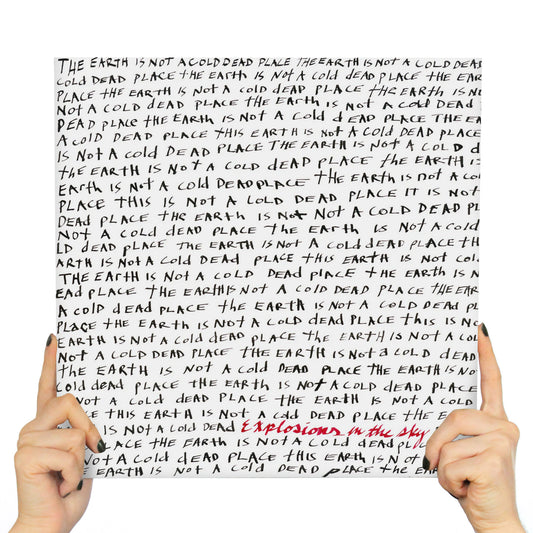 THE EARTH IS NOT A COLD DEAD PLACE THE EARTH IS NOT A COLD DEA
COLD DEAD PLACE THE EARTH IS NOT A COLD DEAD PLACE THE EAR
PLACE THE EARTH IS NOT A COLD DEAD PLACE THE EARTH IS NOT A
NOT A COLD DEAD PLACE THE EARTH IS NOT A COLD DEAD
DEAD PLACE THE EARTH IS NOT A COLD DEAD PLACE THE EAR
A COLD DEAD PLACE THIS EARTH IS NOT A COLD DEAD PLACE
IS NOT A COLD DEAD PLACE THE EARTH IS NOT A COLD D
THE EARTH IS NOT A COLD DEAD PLACE THE EARTH IS
EARTH IS NOT A COLD DEAD PLACE THE EARTH IS NOT A COL
PLACE THIS IS NOT A COLD DEAD PLACE IT IS NOT
DEAD PLACE THE EARTH IS NOT NOT A COLD DEAD PL
NOT A COLD DEAD PLACE THE EARTH IS NOT A COLD
LD DEAD PLACE THE EARTH IS NOT A COLD DEAD PLACE TH
ARTH IS NOT A COLD DEAD PLACE THIS EARTH IS NOT COL
THE EARTH IS NOT A COLD DEAD PLACE THE EARTH IS N
EAD PLACE THE EARTH IS NOT A COLD DEAD PLACE THE EAR
A COLD DEAD PLACE THE EARTH IS NOT A COLD DEAD PL
PLACE THE EARTH IS NOT A COLD DEAD PLACE THIS IS NO
EARTH IS NOT A COLD DEAD PLACE THE EARTH IS NOT A CO
NOT A COLD DEAD PLACE THE EARTH IS NOT A COLD DEAD
THE EARTH IS NOT A COLD DEAD PLACE THE EARTH IS NO
COLD DEAD PLACE THE EARTH IS NOT A COLD DEAD PLACE
NOT A COLD DEAD PLACE THE EARTH IS NOT A COLD
CE THIS EARTH IS NOT A COLD DEAD PLACE THE E
IS NOT A COLD DEAD Explosions in the sky
LACE THE EARTH IS NOT A COLD DEAD PL
NOT A COLD DEAD PLACE THIS EARTH IS NOT A
E EARTH IS NOT A COLD DEAD PLACE THE EAR